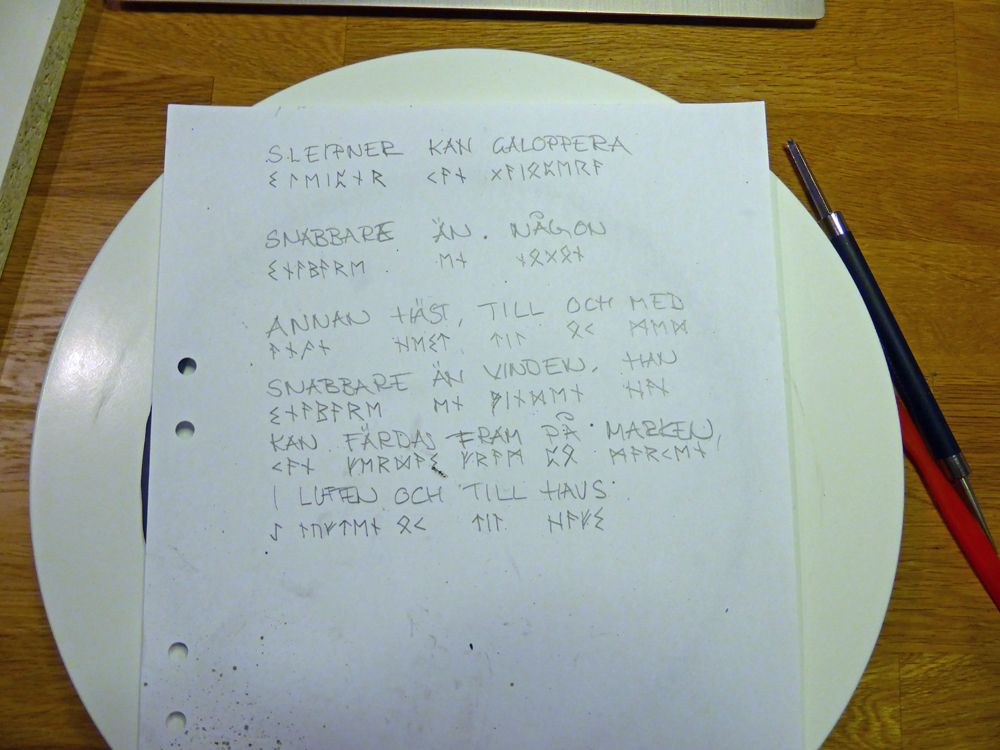 SLEIPNER KAN GALOPPERA
ᛊᛚᛖᛁᛈᚾᚱ ᚲᚨᚾ ᚷᚨᛚᛟᛈᛖᚱᚨ
SNABBARE ÄN NÅGON
ᛊᚾᚨᛒᚨᚱᛖ ᛖᚾ ᚾᛟᚷᛟᚾ
ANNAN HÄST, TILL OCH MED
ᚨᚾᚨᚾ ᚺᛖᛊᛏ ᛏᛁᛚ ᛟᚲ ᛗᛖᛞ
SNABBARE ÄN VINDEN. HAN
ᛊᚾᚨᛒᚨᚱᛖ ᛖᚾ ᚹᛁᚾᛞᛖᚾ ᚺᚨᚾ
KAN FÄRDAS FRAM PÅ MARKEN,
ᚲᚨᚾ ᚠᛖᚱᛞᚨᛊ ᚠᚱᚨᛗ ᛈᛟ ᛗᚨᚱᚲᛖᚾ
I LUFTEN OCH TILL HAVS.
ᛇ ᛚᚢᚠᛏᛖᚾ ᛟᚲ ᛏᛁᛚ ᚺᚨᚠᛊ